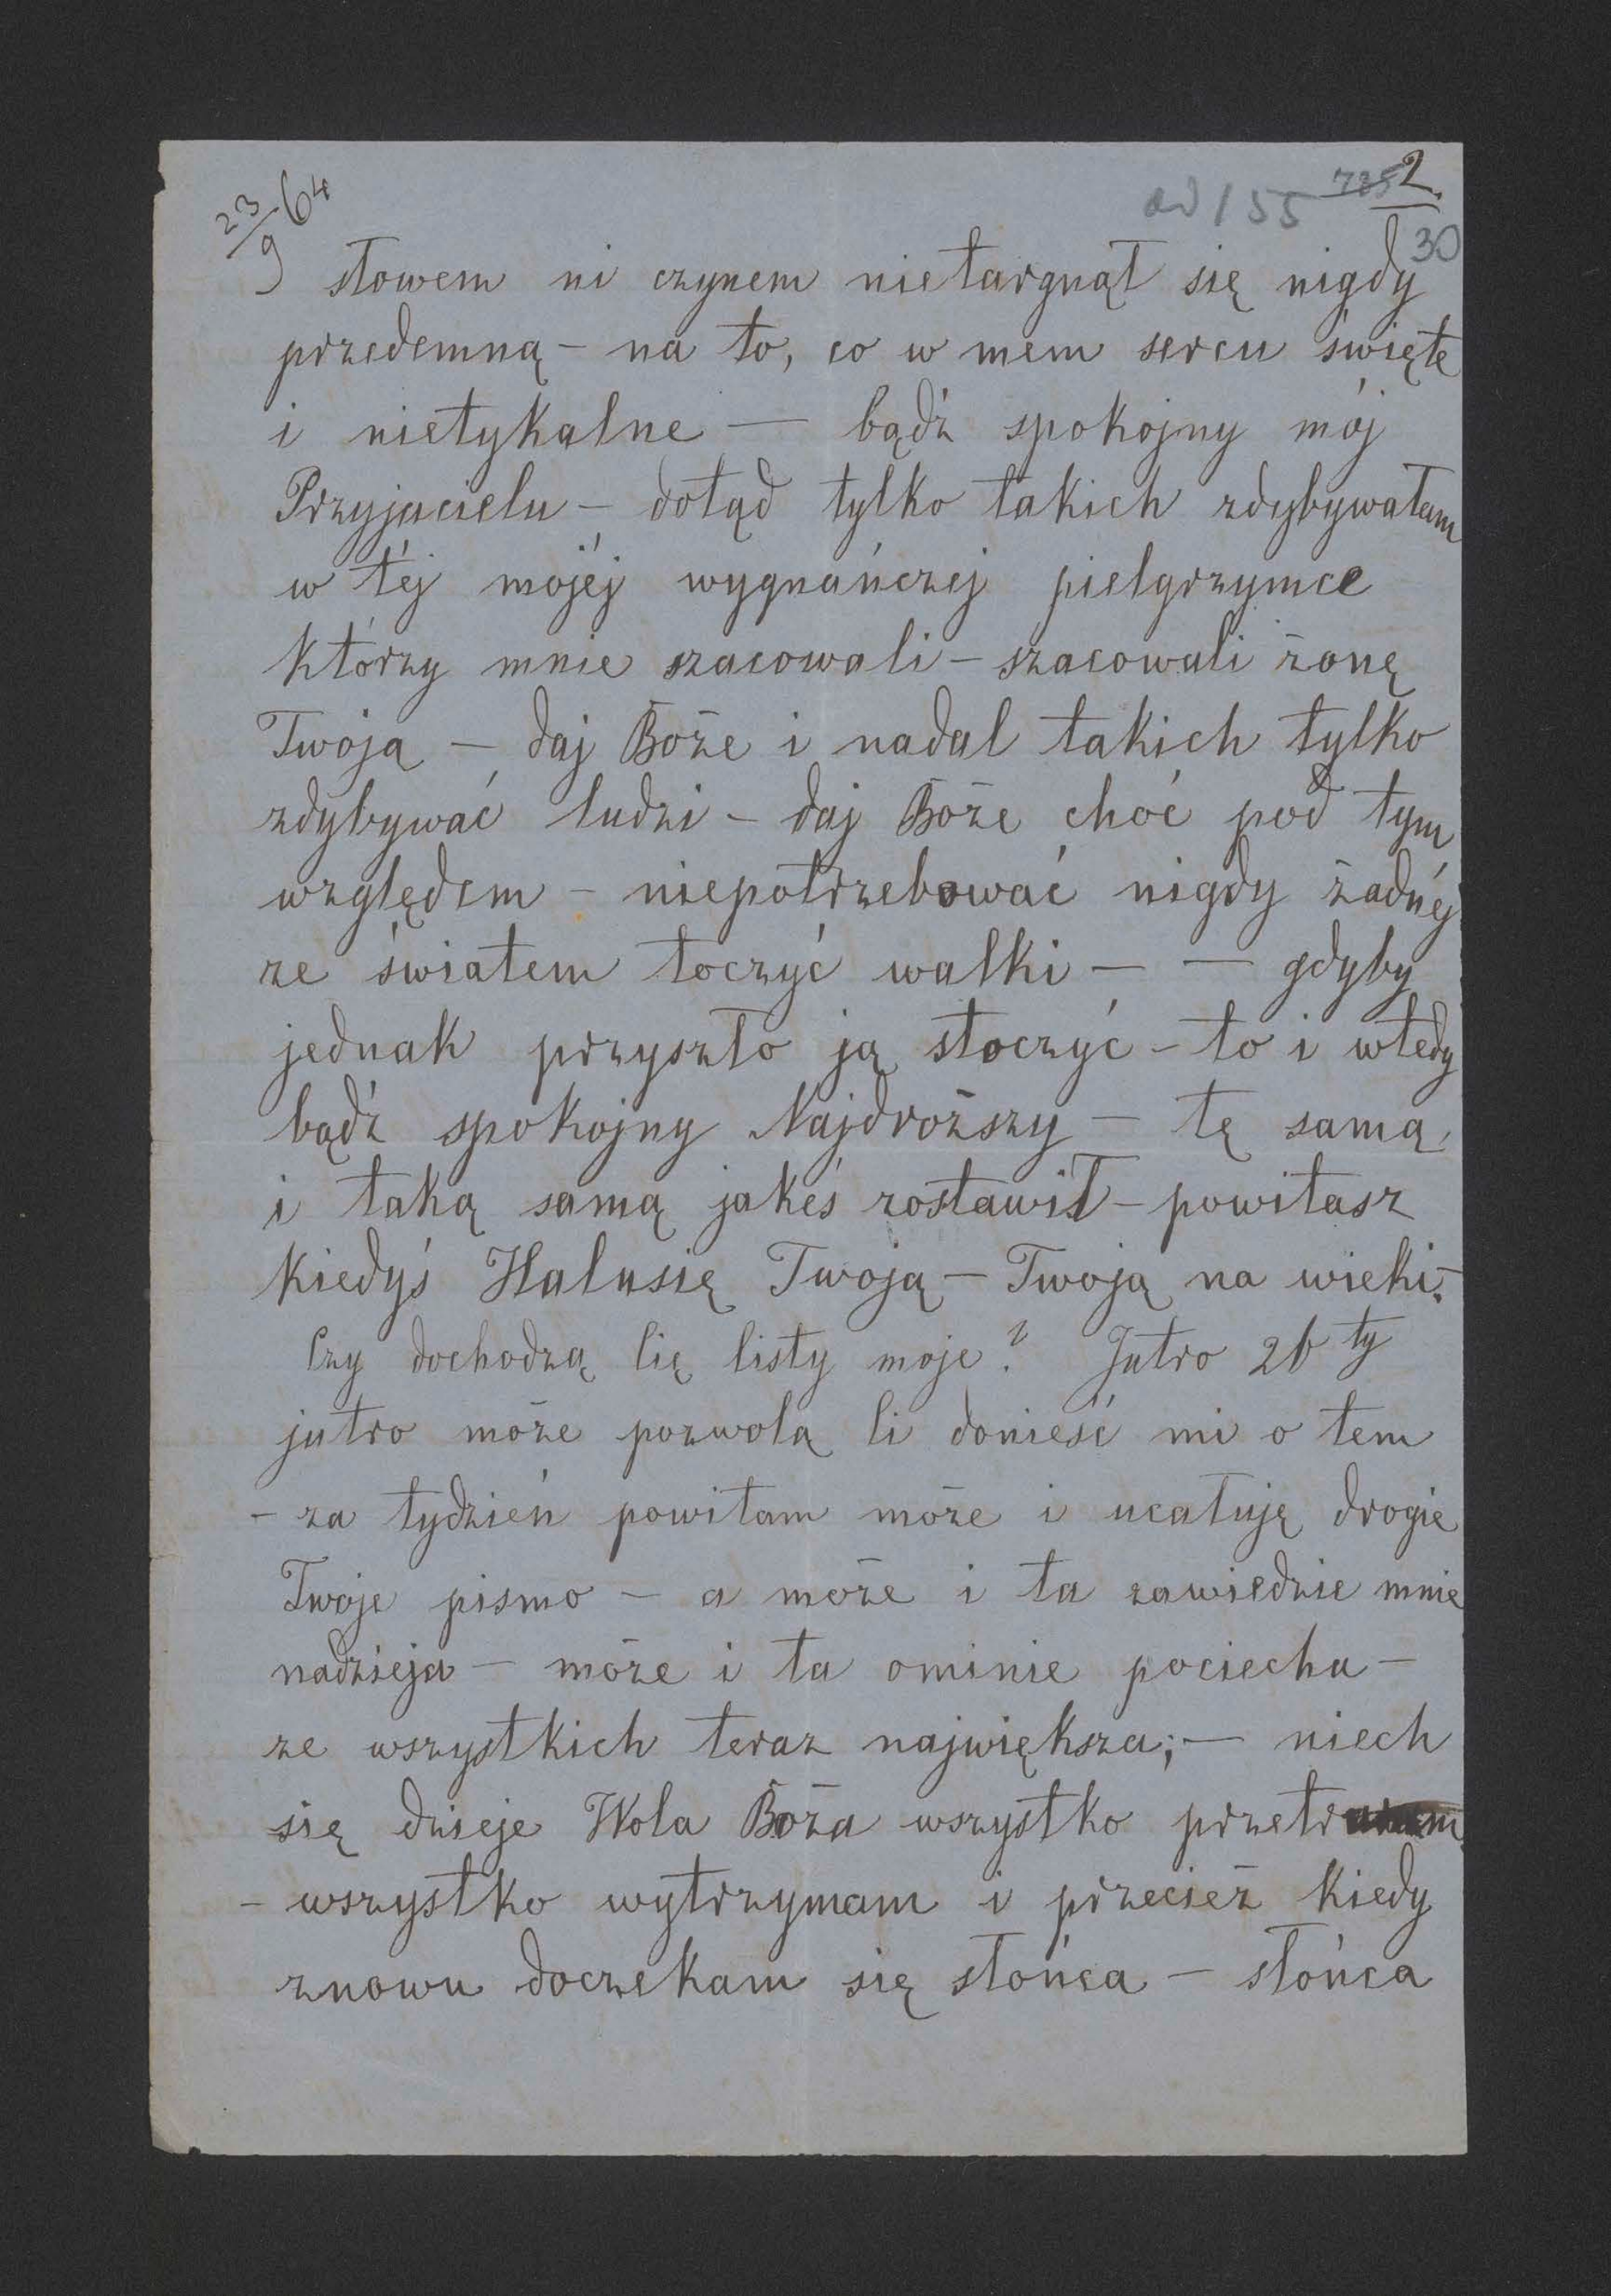 23/9 64
ad 155
735 2.
30
słowem ni czynem nietargnął się nigdy
przedemną – na to, co w mem sercu święte
i nietykalne — bądź spokojny mój
Przyjacielu – dotąd tylko takich zdybywałam
w téj mojéj wygnańczej pielgrzymce
którzy mnie szacowali – szacowali żonę
Twoją – daj Boże i nadal takich tylko
zdybywać ludzi – daj Boże choć pod tym
względem – niepotrzebować nigdy żadnéj
ze światem toczyć walki – — gdyby
jednak przyszło ją stoczyć – to i wtedy
bądź spokojny Najdroższy – tę samą
i taką samą jakeś zostawił – powitasz
kiedyś Halusię Twoją – Twoją na wieki. –
Czy dochodzą Cię listy moje? Jutro 26ty
jutro może pozwolą Ci donieść mi o tem
– za tydzień powitam może i ucałuję drogie
Twoje pismo – a może i ta zawiedzie mnie
nadzieja – może i ta ominie pociecha –
ze wszystkich teraz największa; – niech
się dzieje Wola Boża wszystko przetrwam
– wszystko wytrzymam i przecież kiedy
znowu doczekam się słońca – słońca